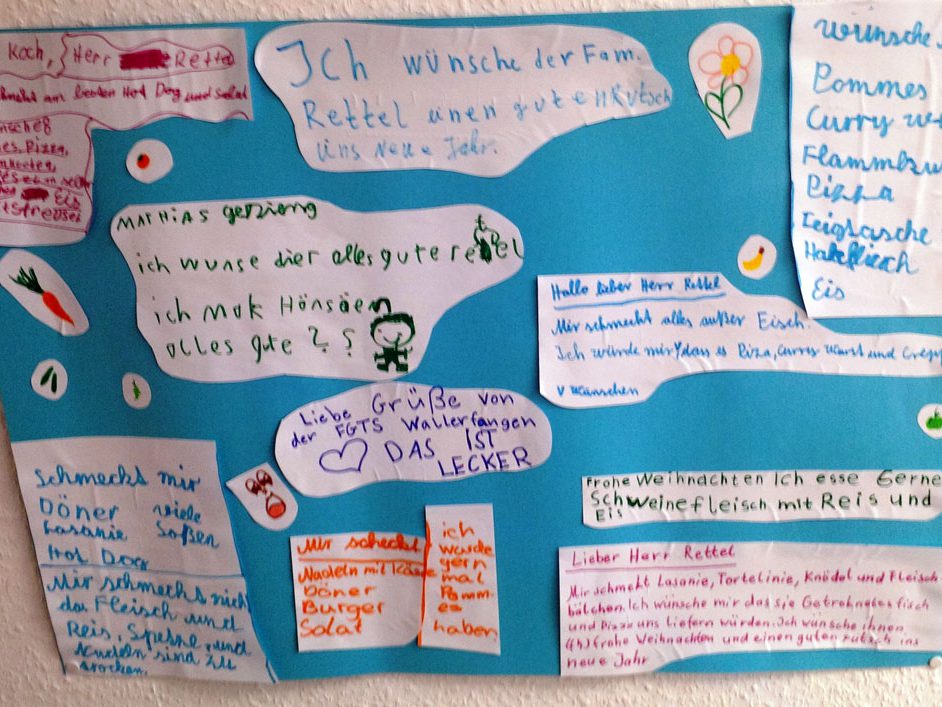 Koch, Herr Rettel
am besten Hot Dog und Salat
Pizza,
Eis
streusel
Ich wünsche der Fam.
Rettel einen guten Rutsch
ins neue Jahr.
wünsche
Pommes
Curry w
Flammku
Pizza
Teigtasche
Hakefleisch
Eis
MATHIAS
ich wunse dier alles gute retel
ich mak
alles gute ? ?
Hallo lieber Herr Rettel
Mir schmeckt alles außer Eisch.
Ich würde mir dan es Pizza, curry wurst und Crep
v wünschen
Liebe Grüße von
der FGTS Wallerfangen
DAS IST
LECKER
Schmeckt mir
Döner viele
Lasanie Soßen
Hot Dog
Mir schmeckt nich
das Fleisch und
Reis, und
Nudeln sind zu
trocken.
Mir scheckt
Nudeln mit Käse
Döner
Burger
Salat
ich
würde
gern
mal
Pomm-
es
haben
Frohe Weihnachten Ich esse Gerne
Schweinefleisch mit Reis und
Eis
Lieber Herr Rettel
Mir schmekt Lasanie, Tortelinie, Knödel und Fleisch
bälchen. Ich wünsche mir das sie Getroknetes fisch
und Pizza uns liefern würden. Ich wünsche ihnen
frohe Weihnachten und einen guten rutsch ins
neue Jahr